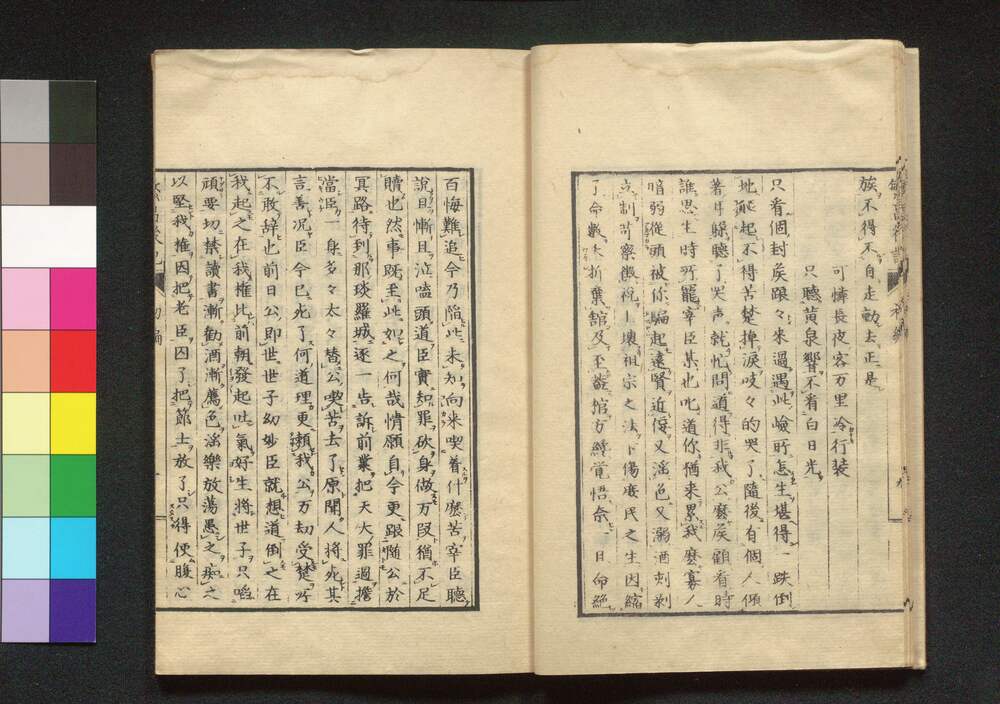 族不得不自走動去正是
可憐長夜客万里冷行装
只聽黄泉響不看白日光
只看個封矦踉々来過遇此嶮所怎生堪得一跌倒
地能起不得苦楚掉淚吱々的哭了隨後有個人傾
著耳躲聽了哭声就忙問道得非我公麼矦顧看時
誰思生時所寵宰臣某也叱道你猶来累我麼寡人
暗弱從頭被你騙起遠賢近佞又滛色又溺酒刺剥
苛察上壊祖宗之法下傷庶民之生因縮
了命數夭折棄舘及至蓋棺方纔覚悟奈一日命絶
百悔難追今乃陷此未知向来喫着什麼苦宰臣聽
說且慚且泣嗑頭道臣實知罪砍身做万段猶不足
贖也然事既至此如之何哉情願自今更跟随公於
冥路待到那琰羅城逐一告訴前業把天大罪過擔
當臣一身多々太々替公喫苦去了原聞人将死其
言善况臣今已死了何道理更頼我公万劫受楚所
不敢辞也前日公即世世子幼妙臣就想道倒之在
我起之在我権比前朝發起吐氣好生将世子只啗
頑要切禁讀書漸勧酒漸薦色滛樂放蕩愚之痴之
以堅我権因把老臣囚了把節士放了只得便腹心